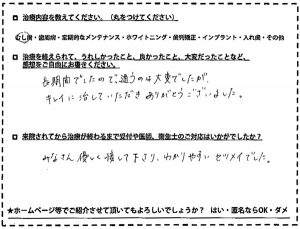 治療内容を教えてください。（丸をつけてください）
むし歯・歯周病・定期的なメンテナンス・ホワイトニング・歯列矯正・インプラント・入れ歯・その他
治療を終えられて、うれしかったこと、良かったこと、大変だったことなど、
感想をご自由にお書きください。
長期間でしたので、通うのは大変でしたが、
キレイに治していただきありがとうございました。
来院されてから治療が終わるまで受付や医師、衛生士のご対応はいかがでしたか？
みなさん優しく接して下さり、わかりやすいセツメイでした。
★ホームページ等でご紹介させて頂いてもよろしいでしょうか？ はい・匿名ならOK・ダメ